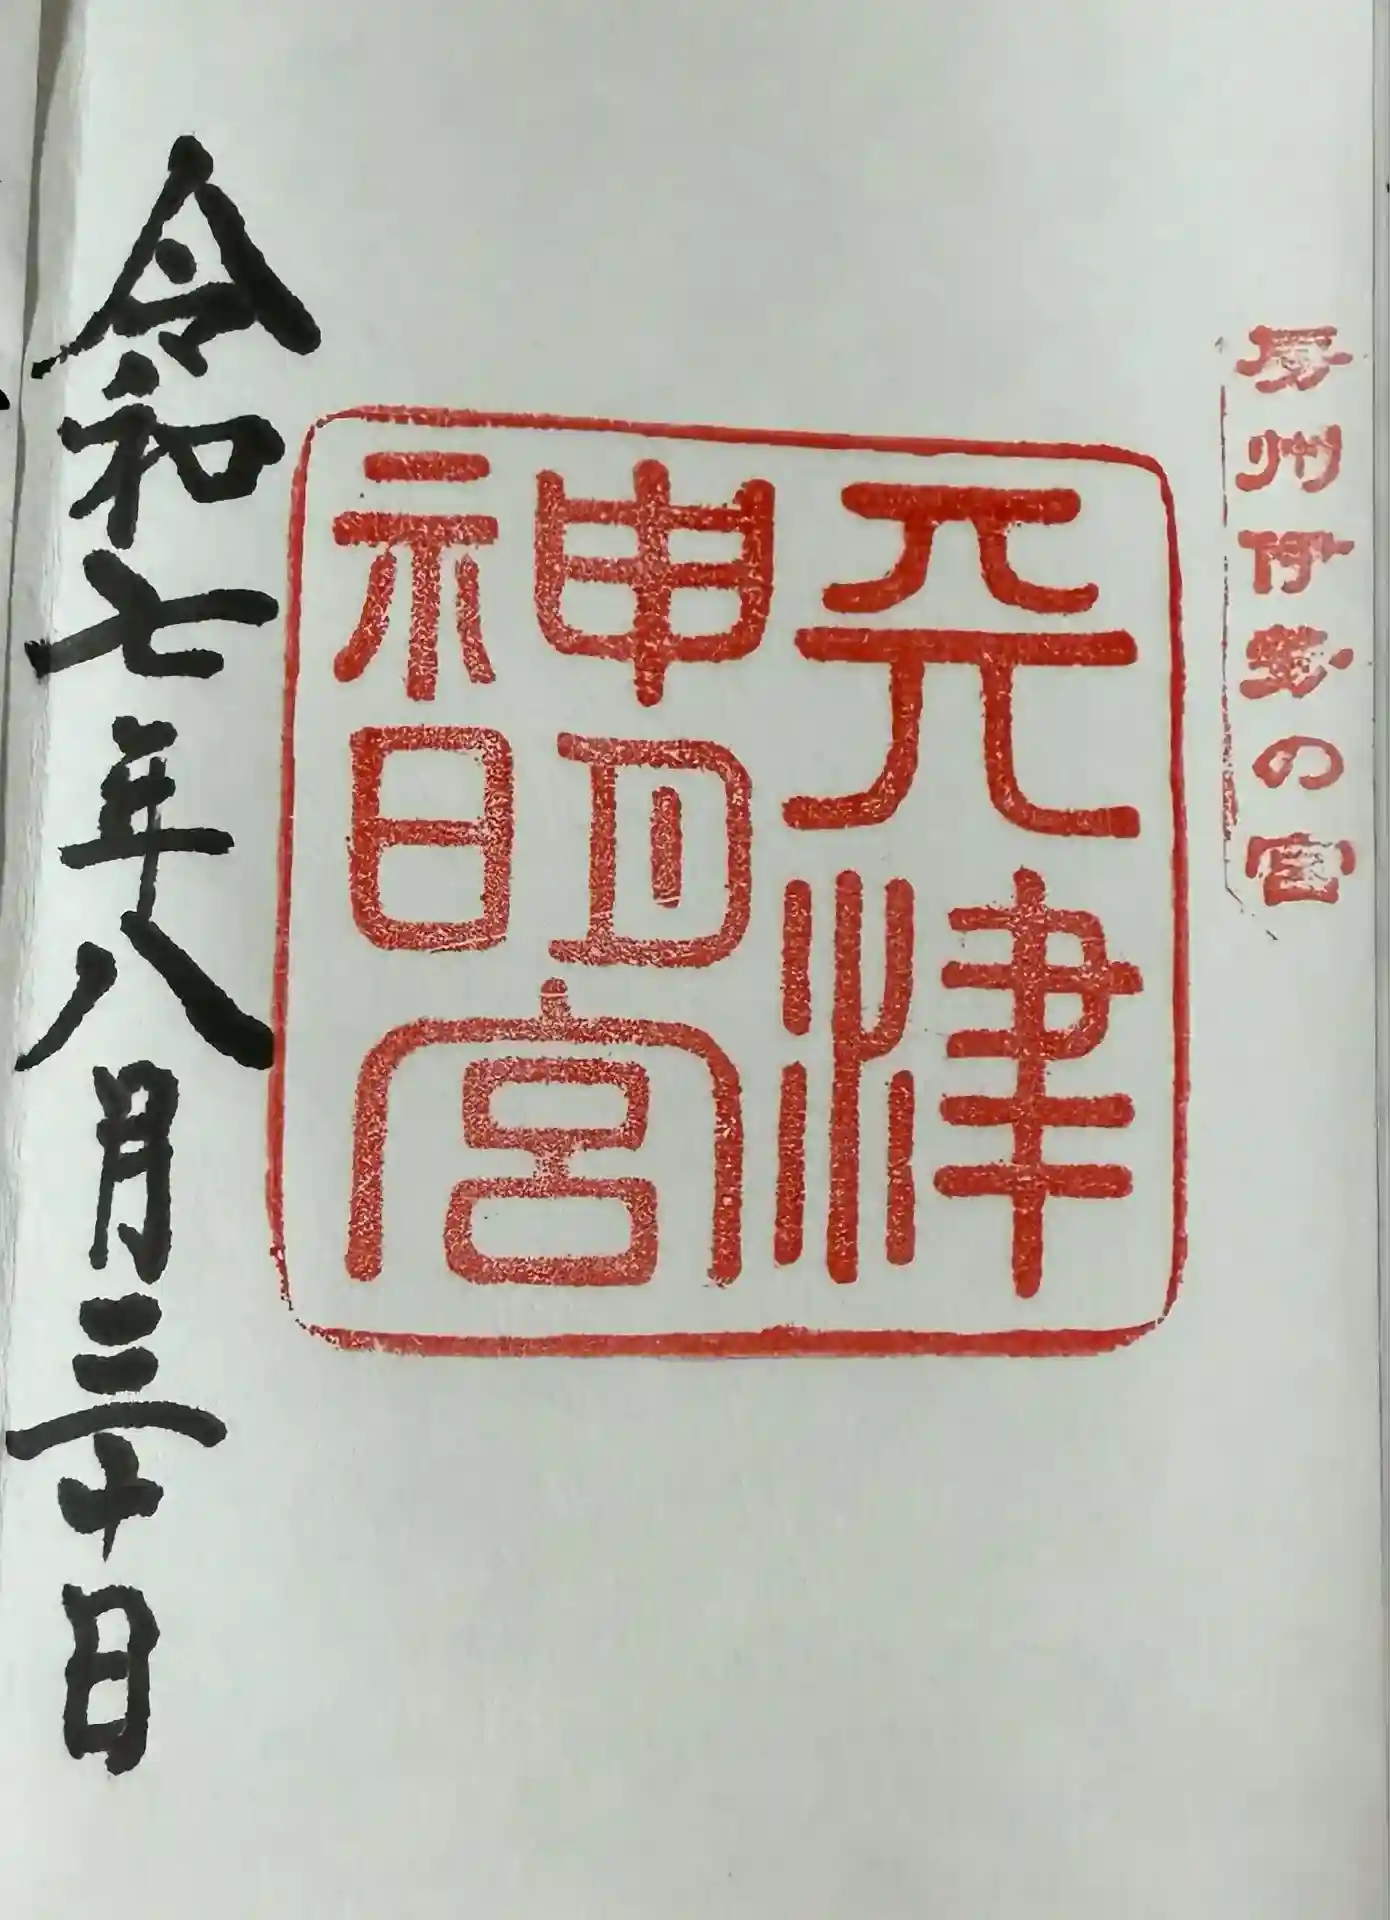 房州伊勢の宮
天津
神明宮
令和七年八月三十日